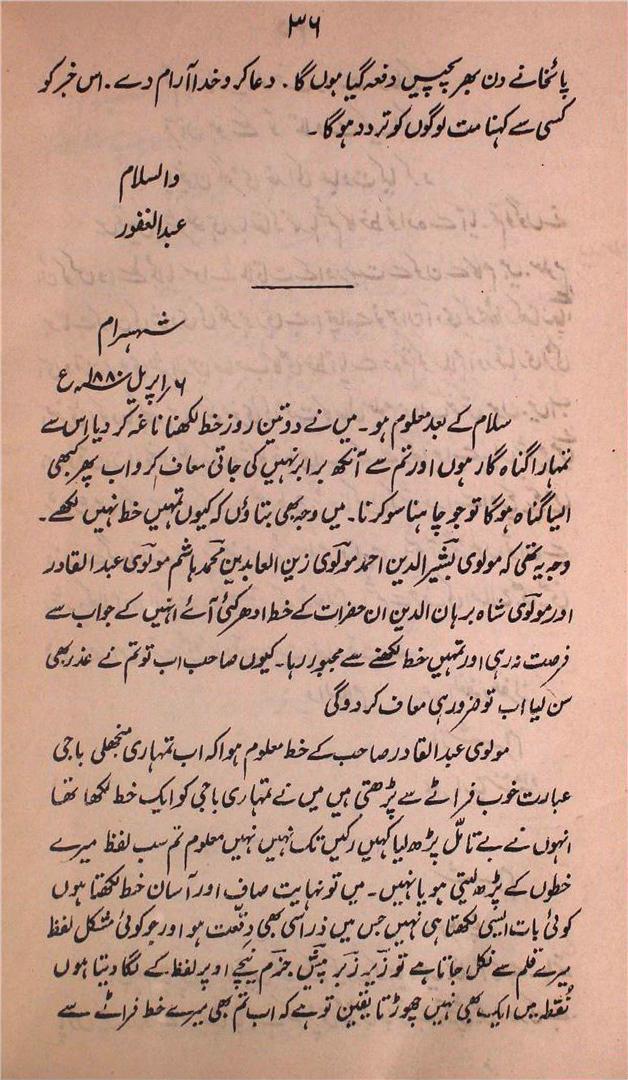 ۳۶
پائخانے دن بھر پچیس دفعہ گیا ہوں گا۔ دعا کرو خدا آرام دے۔ اس خبر کو
کسی سے کہنا مت لوگوں کو تردد ہوگا۔
والسلام
عبدالغفور
شہسرام
۶؍اپریل ۱۸۸۰ء
سلام کے بعد معلوم ہو۔ میں نے دو تین روز خط لکھنا ناغہ کر دیا اس سے
تمہارا گناہ گار ہوں اور تم سے آنکھ برابر نہیں کی جاتی معاف کرو اب پھر کبھی
ایسا گناہ ہوگا تو جو چاہنا سو کرنا۔ میں وجہ بھی بتاؤں کہ کیوں تمہیں خط نہیں لکھے۔
وجہ یہ تھی کہ مولوی بشیر الدین احمد مولوی زین العابدین محمد ہاشم مولوی عبد القادر
اور مولوی شاہ برہان الدین ان حضرات کے خط ادھر کئی آئے انہیں کے جواب سے
فرصت نہ رہی اور تمہیں خط لکھنے سے مجبور رہا۔ کیوں صاحب اب تو تم نے عذر بھی
سن لیا اب تو ضرور ہی معاف کر دوگی
مولوی عبد القادر صاحب کے خط معلوم ہوا کہ اب تمہاری منجھلی باجی
عبارت خوب فراٹے سے پڑھتی ہیں میں نے تمہاری باجی کو ایک خط لکھا تھا
انہوں نے بے تامّل پڑھ لیا کہیں رکیں تک نہیں نہیں معلوم تم سب لفظ میرے
خطوں کے پڑھ لیتی ہو یا نہیں۔ میں تو نہایت صاف اور آسان خط لکھتا ہوں
کوئی بات ایسی لکھتا ہی نہیں جس میں ذرا سی بھی دقّت ہو اور جو کوئی مشکل لفظ
میرے قلم سے نکل جاتا ہے تو زیر زبر پیش جزم نیچے اوپر لفظ کے لگا دیتا ہوں
نُقطہ میں ایک بھی نہیں چھوڑتا یقین تو ہے کہ اب تم بھی میرے خط فراٹے سے